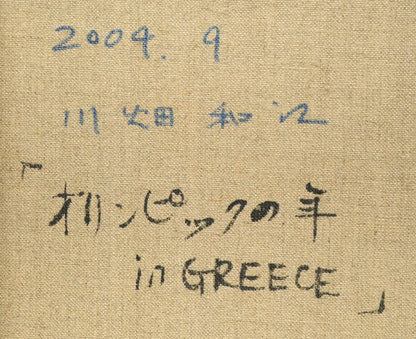 2004. 9
川畑 和江
「
オリンピックの年
in GREECE」